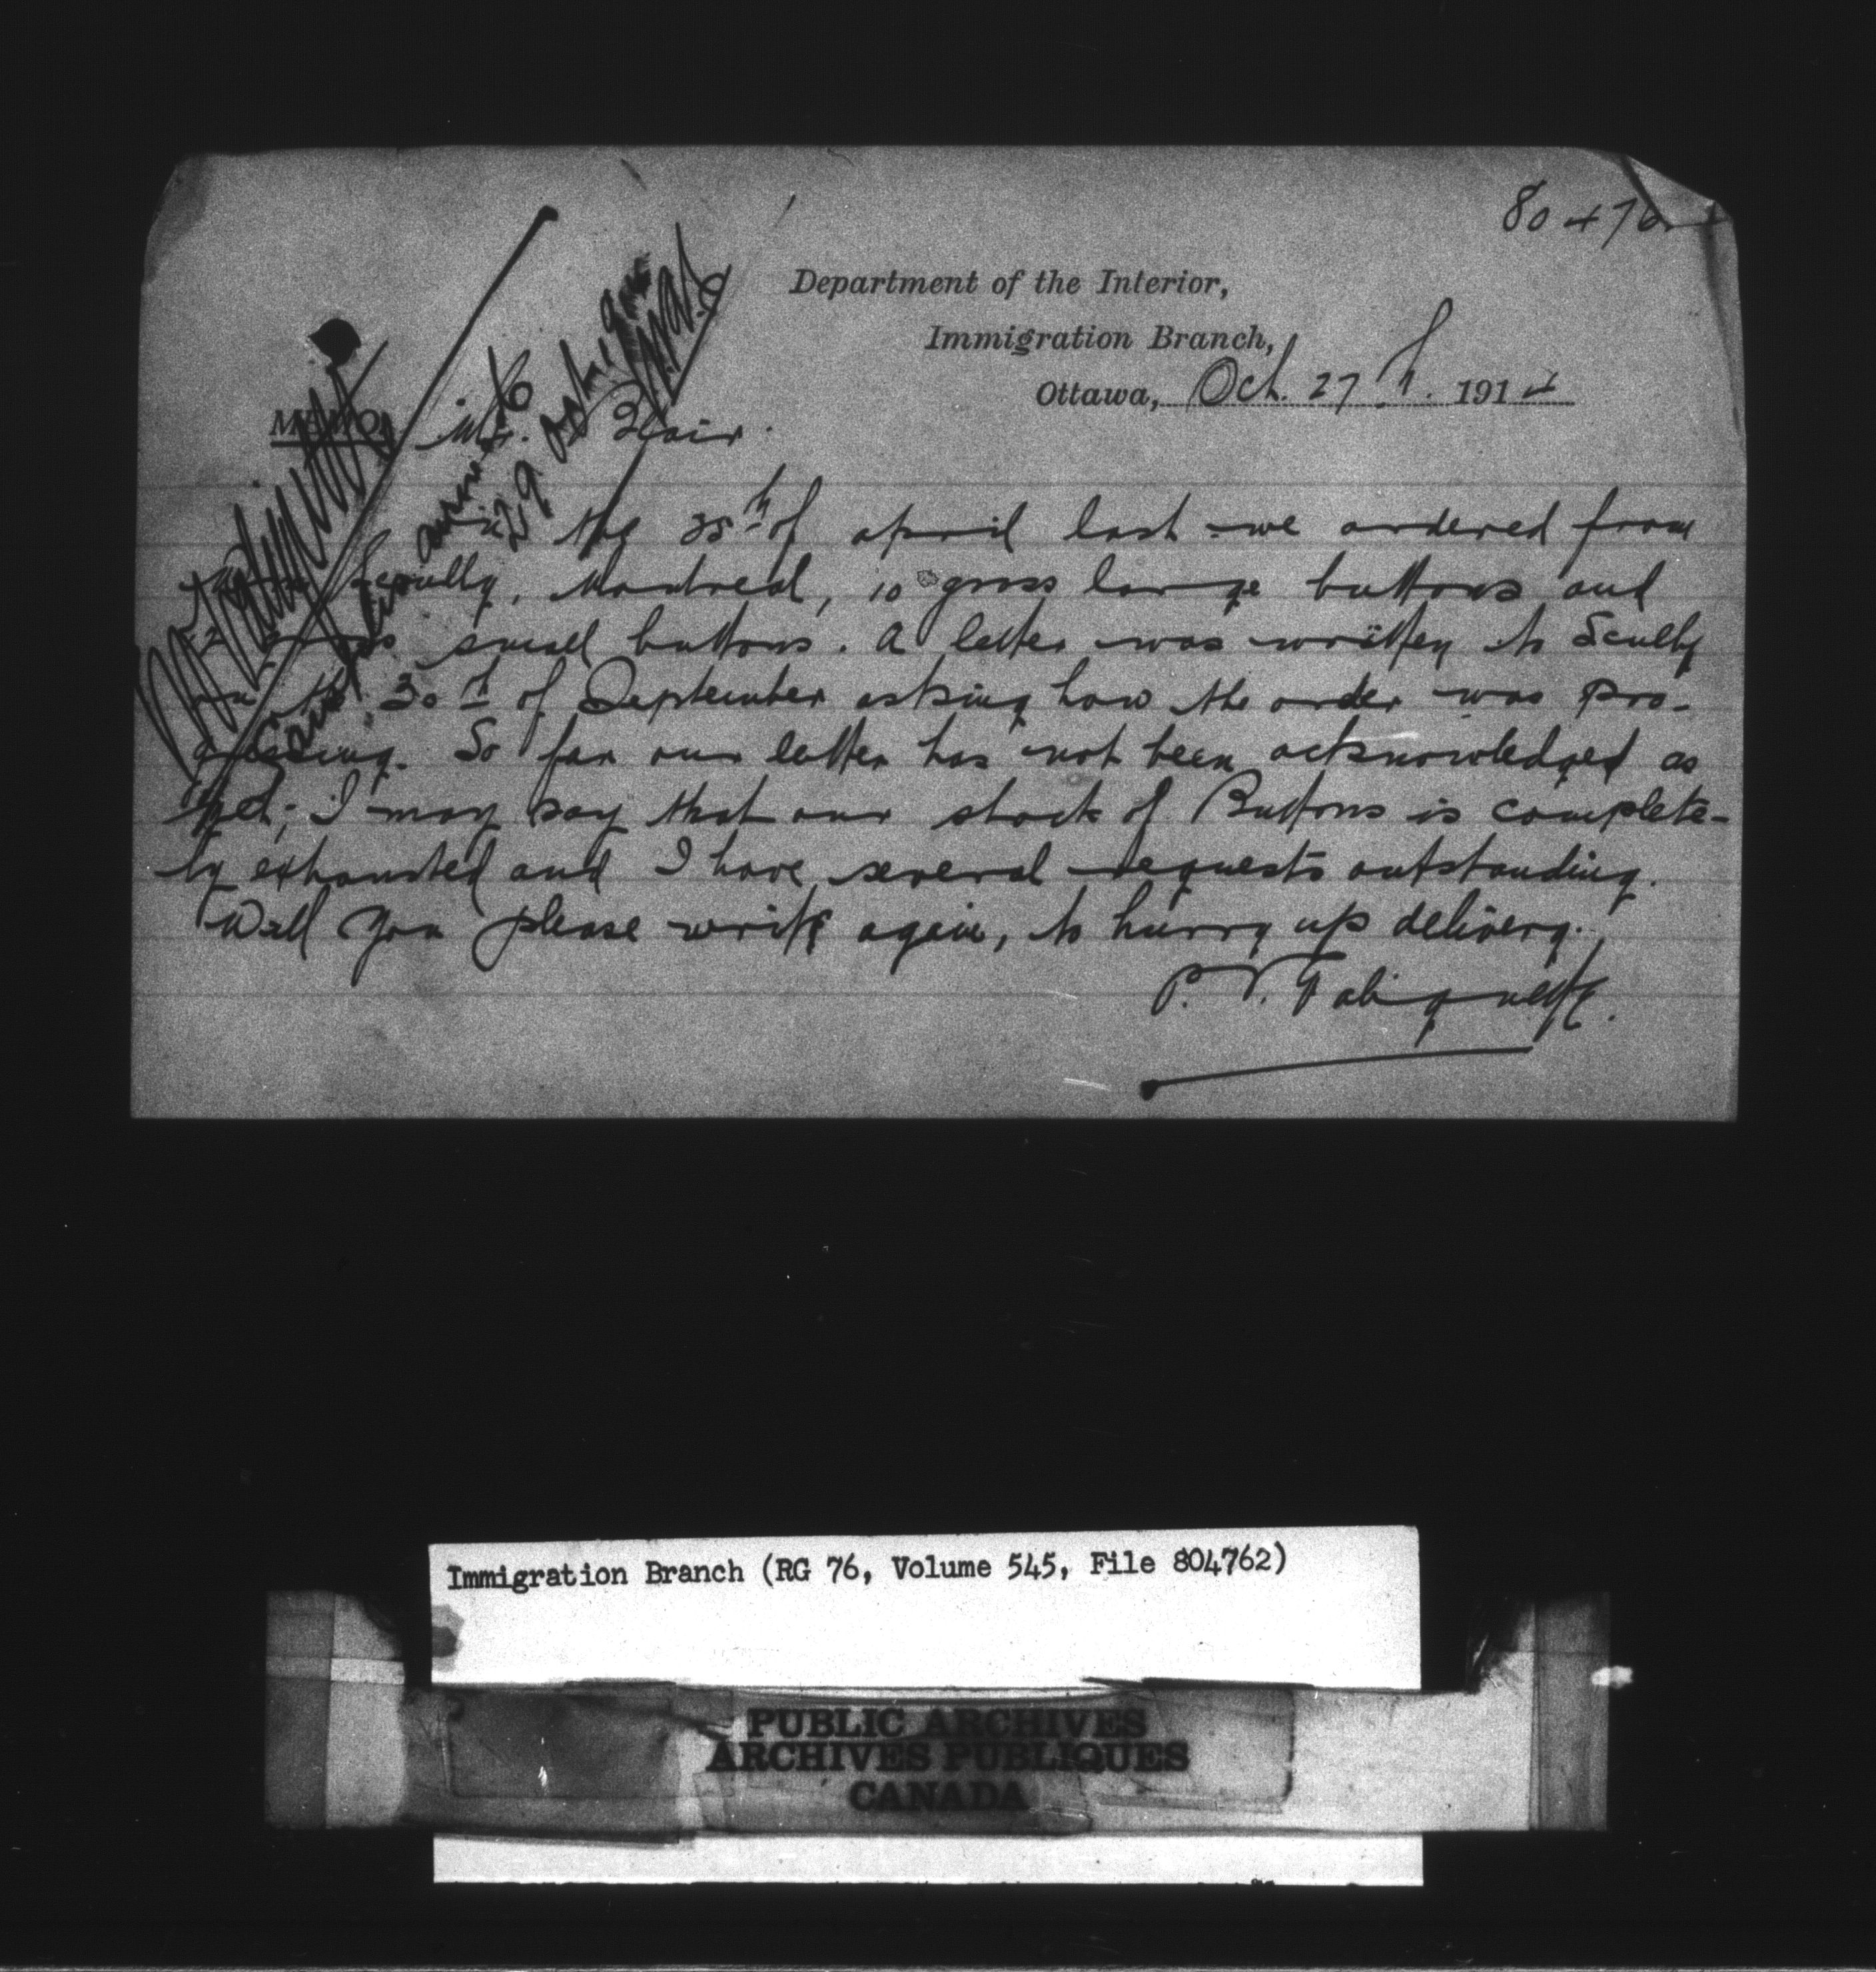 804762
Department of the Interior,
Immigration Branch,
Ottawa, Oct. 27th 1914
MEMO. Mr. Blair.
the 28th of april last we ordered from
Scully, Montreal, 10 gross large buttons and
small buttons. A letter was written to Scully
on the 30th of September asking how the order was pro-
gressing. So far our letter has not been acknowledged as
yet; I may say that our stock of Buttons is complete-
ly exhausted and I have several requests outstanding.
Will you please write again, to hurry up delivery.
P. V. Taliquette.
Mr Taliquette
Immigration Branch (RG 76, Volume 545, File 804762)
PUBLIC ARCHIVES
ARCHIVES PUBLIQUES
CANADA